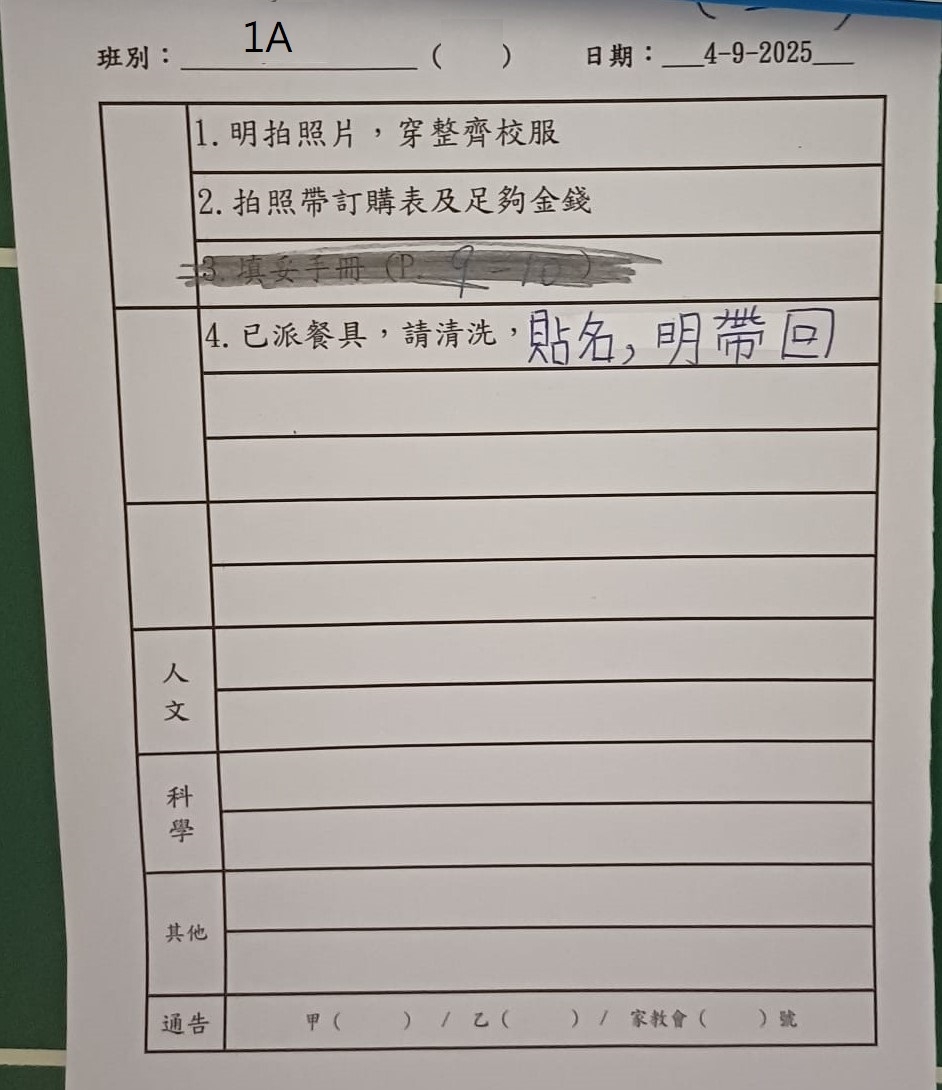 班別：1A（　　） 日期：4-9-2025
1. 明拍照片，穿整齊校服
2. 拍照帶訂購表及足夠金錢
3. 填妥手冊（P. 9-10）
4. 已派餐具，請清洗，貼名，明帶回
人文
科學
其他
通告 甲（　　）/ 乙（　　）/ 家教會（　　）號